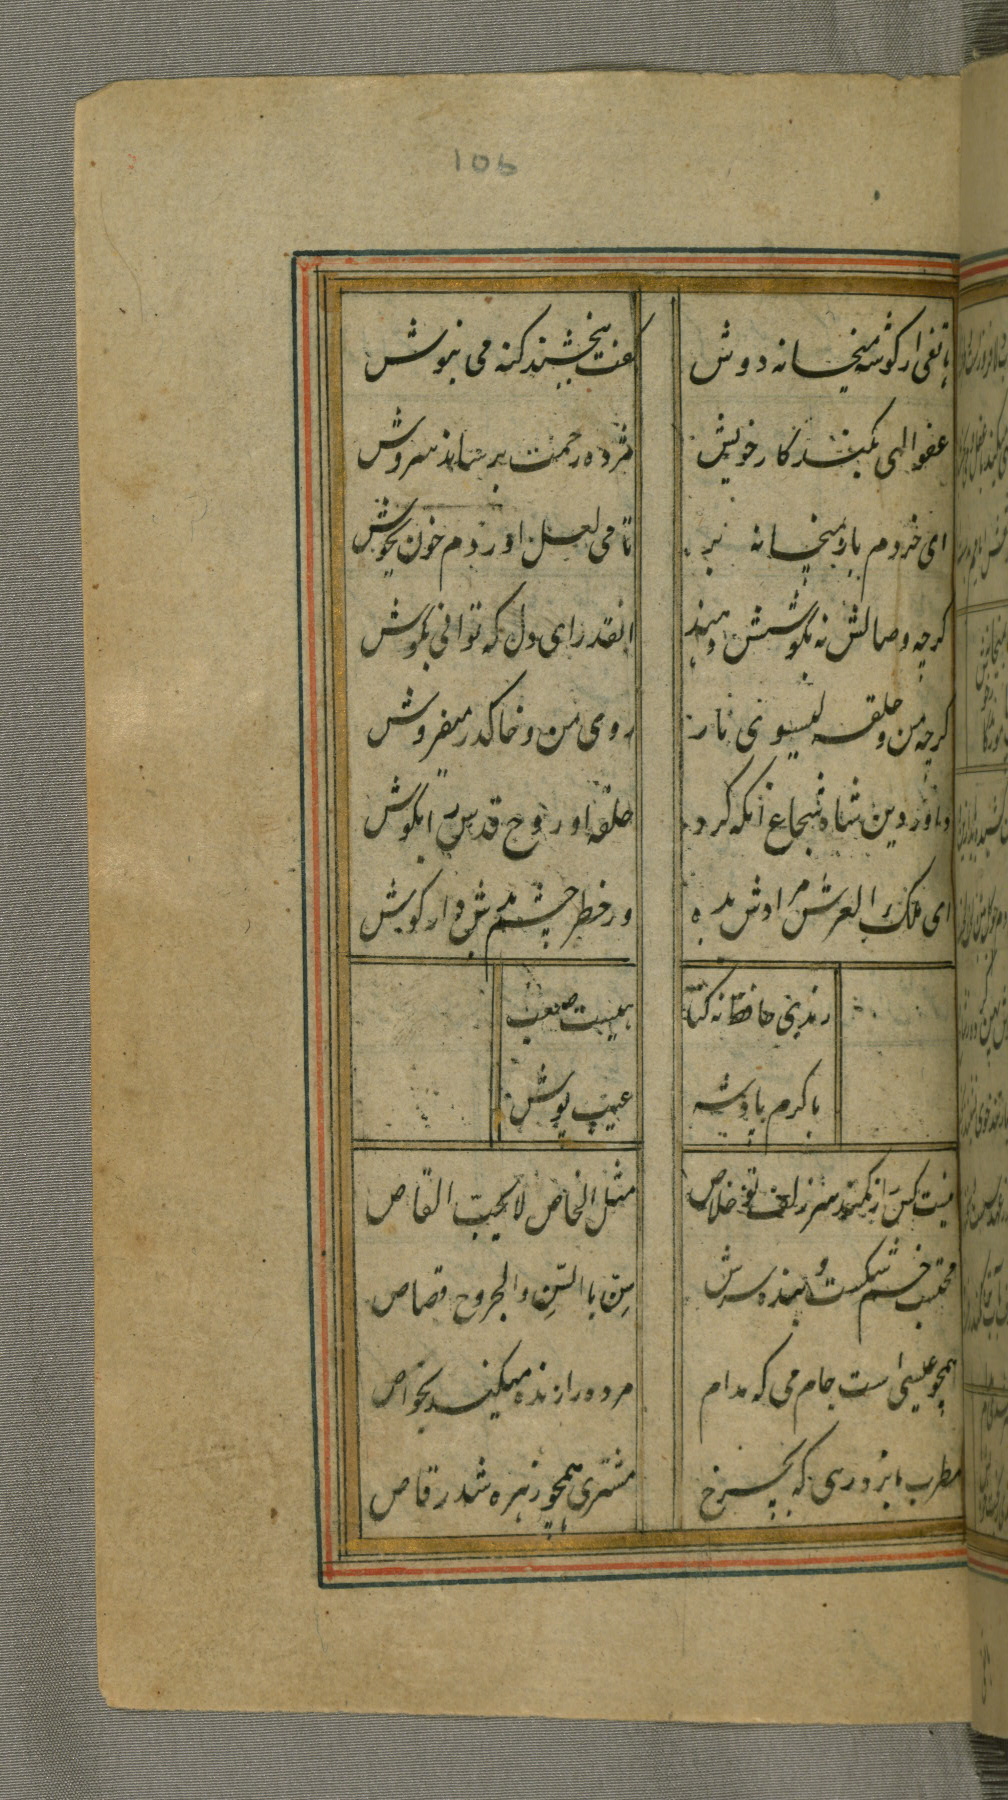 106
هاتفی از گوشه میخانه دوش
گفت ببخشند گنه می بنوش
عفو الهی بکند کار خویش
مژده رحمت برساند سروش
ای خردم باز میخانه بر
تا می لعل اوردم خون بجوش
گرچه وصالش نه بکوشش دهند
انقدر ای دل که توانی بکوش
گرچه من و حلقه گیسوی نار
روی من و خاک در میفروش
داور دین شاه شجاع آنکه کرد
حلقه او روح قدس را بگوش
ای ملک العرش مرادش بده
و ز خطر چشم بدش دار گوش
رندی حافظ نه گنا
هیست صعب
با کرم پادشه
عیب پوش
نیست کس را ز کمند سر زلف تو خلاص
مثل الخاص لا یحب القاص
محتسب خم شکست و بنده سرش
سن باالسن والجروح قصاص
همچو عیسی است جام می که مدام
مرده را زنده میکند بخواص
مطرب ما بزد رهی که بچرخ
مشتری همچو زهره شد رقاص